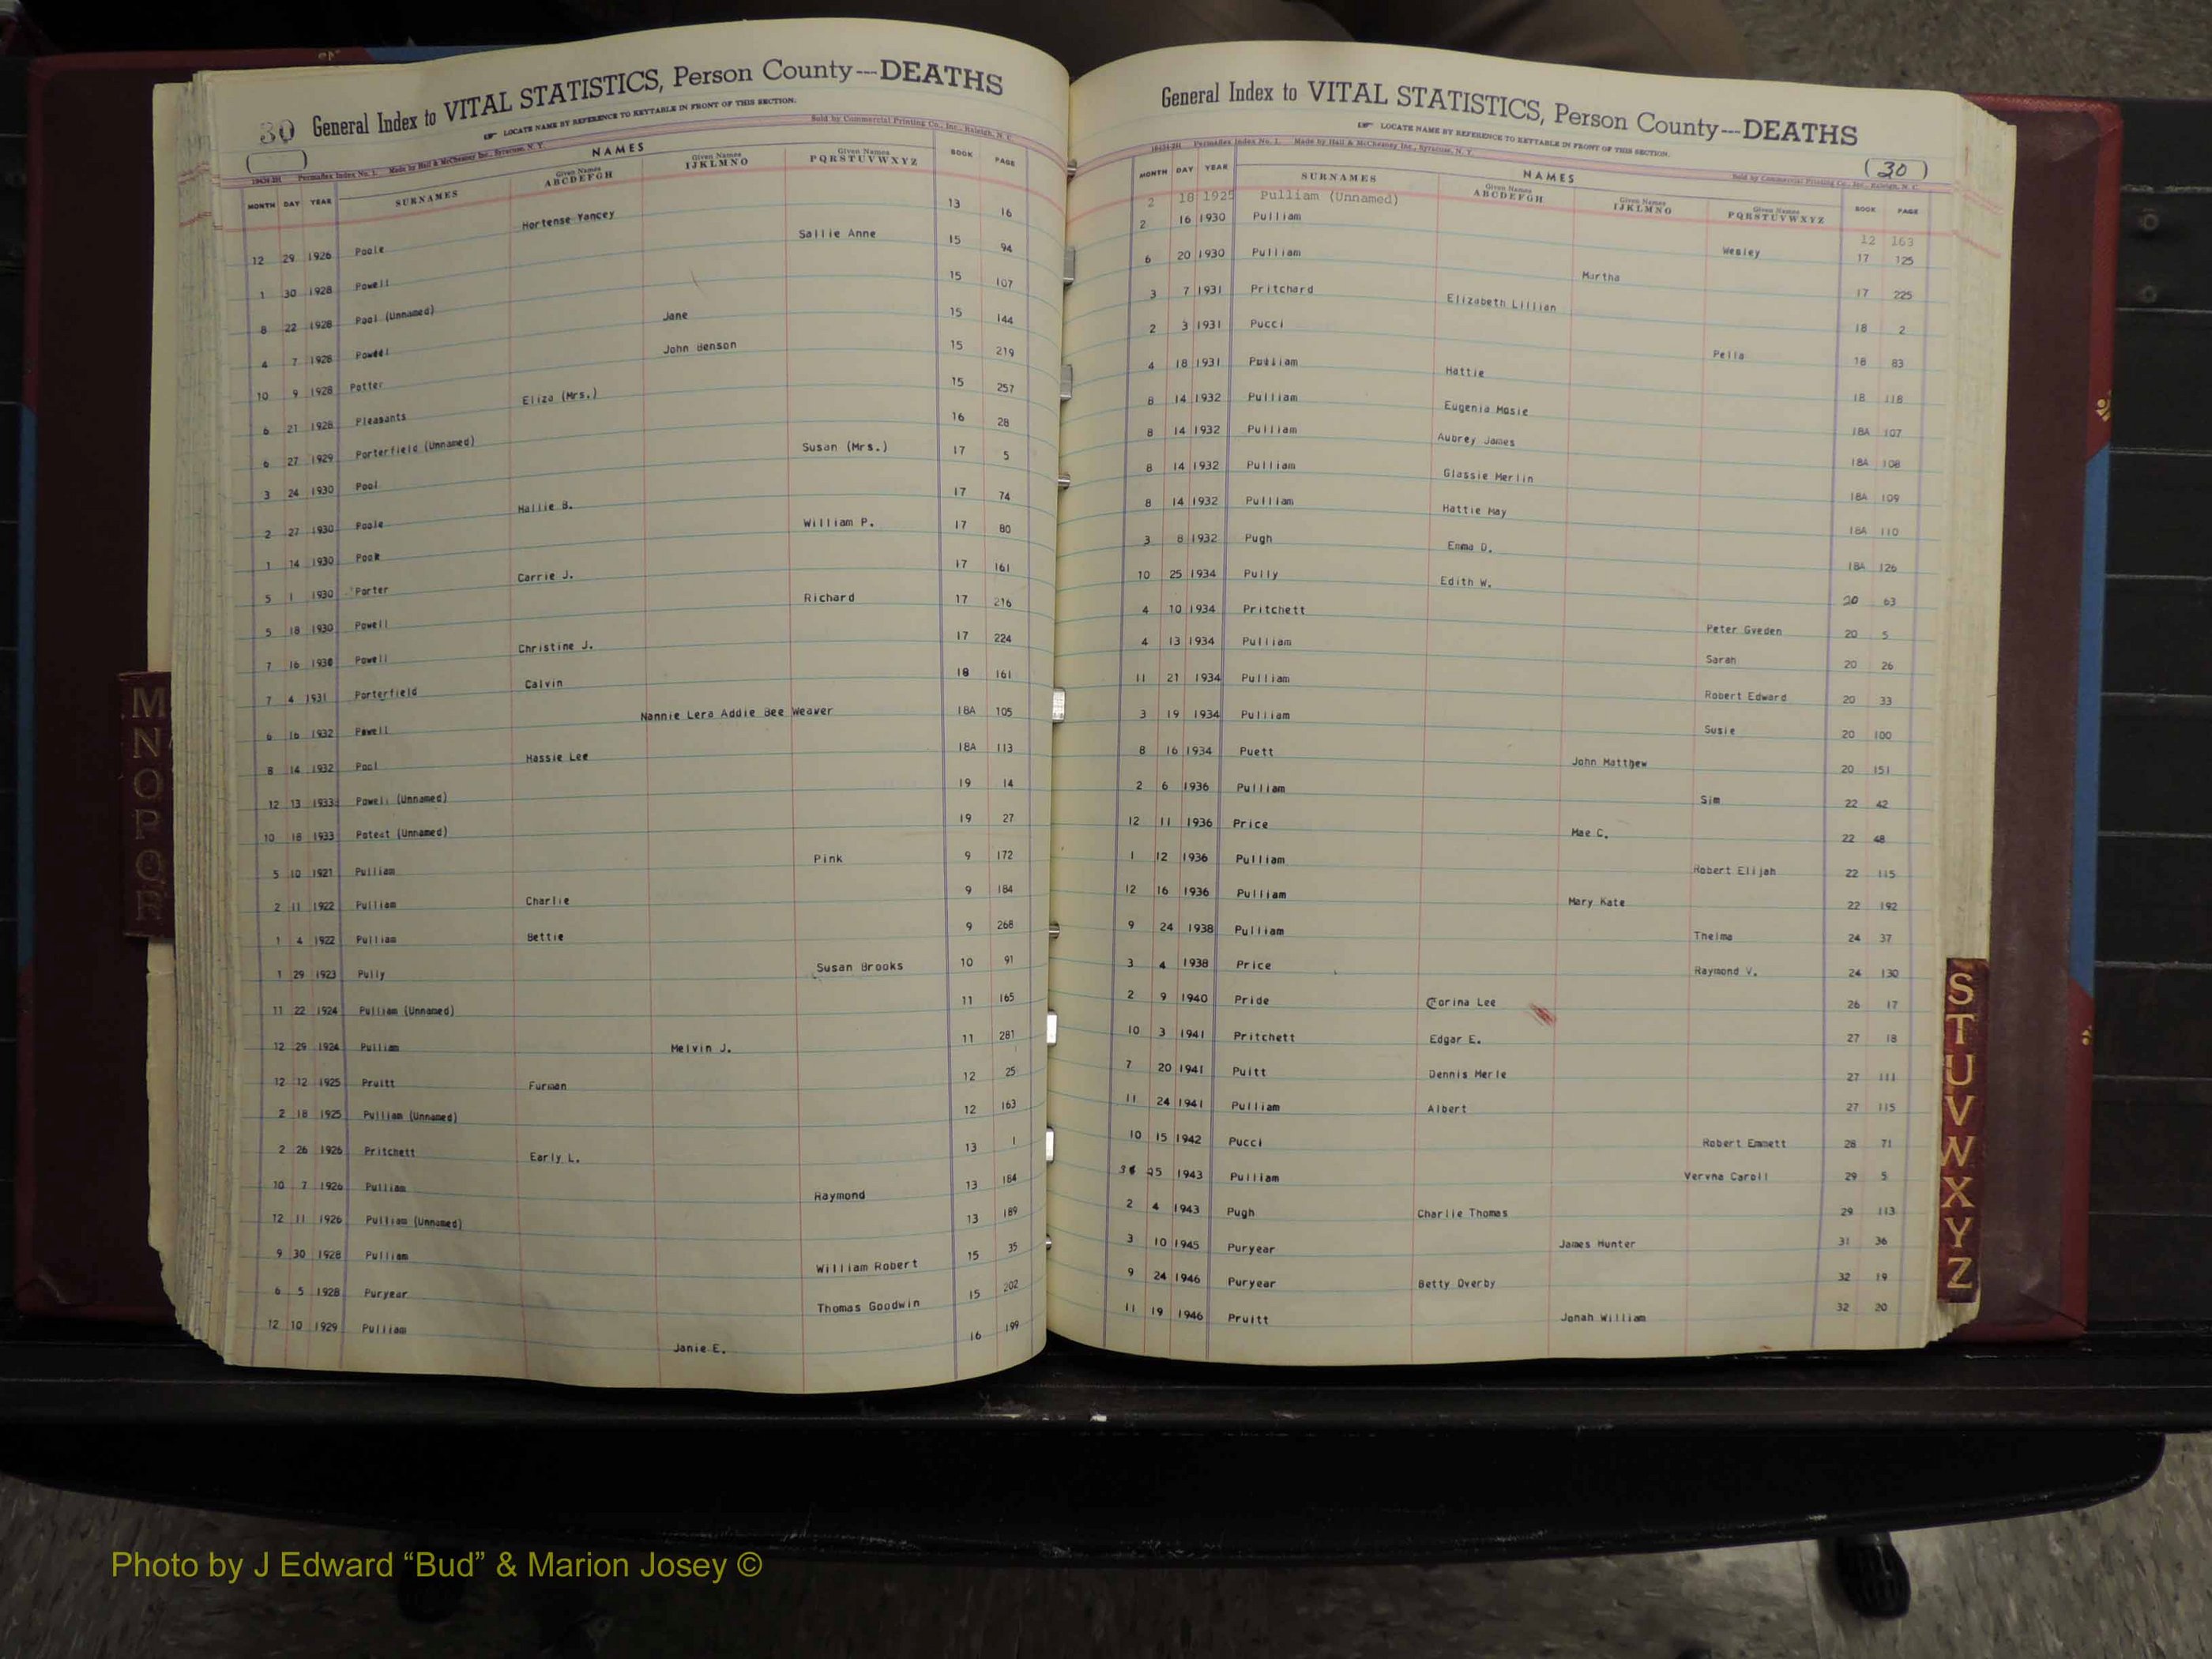 30 General Index to VITAL STATISTICS, Person County---DEATHS
LOCATE NAME BY REFERENCE TO KEYTABLE IN FRONT OF THIS SECTION.
Permaflex Index No. 1. Made by Hall & McChesney Inc., Syracuse, N. Y. Sold by Commercial Printing Co., Inc., Raleigh, N. C.
NAMES
MONTH DAY YEAR SURNAMES Given Names ABCDEFGH Given Names IJKLMNO Given Names PQRSTUVWXYZ BOOK PAGE
12 29 1926 Poole Hortense Yancey 13 16
1 30 1928 Powell Sallie Anne 15 94
8 22 1928 Pool (Unnamed) 15 107
4 7 1928 Powell Jane 15 144
10 9 1928 Potter John Benson 15 219
6 21 1928 Pleasants Eliza (Mrs.) 15 257
6 27 1929 Porterfield (Unnamed) 16 28
3 24 1930 Pool Susan (Mrs.) 17 5
2 27 1930 Poole Hallie B. 17 74
1 14 1930 Pook William P. 17 80
5 1 1930 Porter Carrie J. 17 161
5 18 1930 Powell Richard 17 216
7 16 1930 Powell Christine J. 17 224
7 4 1931 Porterfield Calvin 18 161
6 16 1932 Powell Nannie Lera Addie Bee Weaver 18A 105
8 14 1932 Pool Hassie Lee 18A 113
12 13 1933 Powell (Unnamed) 19 14
10 18 1933 Poteat (Unnamed) 19 27
5 10 1921 Pulliam Pink 9 172
2 11 1922 Pulliam Charlie 9 184
1 4 1922 Pulliam Bettie 9 268
1 29 1923 Pully Susan Brooks 10 91
11 22 1924 Pulliam (Unnamed) 11 165
12 29 1924 Pulliam Melvin J. 11 281
12 12 1925 Pruitt Furman 12 25
2 18 1925 Pulliam (Unnamed) 12 163
2 26 1926 Pritchett Early L. 13 1
10 7 1926 Pulliam Raymond 13 184
12 11 1926 Pulliam (Unnamed) 13 189
9 30 1928 Pulliam William Robert 15 35
6 5 1928 Puryear Thomas Goodwin 15 202
12 10 1929 Pulliam Janie E. 16 199
General Index to VITAL STATISTICS, Person County---DEATHS
LOCATE NAME BY REFERENCE TO KEYTABLE IN FRONT OF THIS SECTION.
(30)
Permaflex Index No. 1. Made by Hall & McChesney Inc., Syracuse, N. Y. Sold by Commercial Printing Co., Inc., Raleigh, N. C.
NAMES
MONTH DAY YEAR SURNAMES Given Names ABCDEFGH Given Names IJKLMNO Given Names PQRSTUVWXYZ BOOK PAGE
2 18 1925 Pulliam (Unnamed) 12 163
2 16 1930 Pulliam Wesley 17 125
6 20 1930 Pulliam Martha 17 225
3 7 1931 Pritchard Elizabeth Lillian 18 2
2 3 1931 Pucci Pella 18 83
4 18 1931 Pulliam Hattie 18 118
8 14 1932 Pulliam Eugenia Mosie 18A 107
8 14 1932 Pulliam Aubrey James 18A 108
8 14 1932 Pulliam Glassie Merlin 18A 109
8 14 1932 Pulliam Hattie May 18A 110
3 8 1932 Pugh Emma D. 18A 126
10 25 1934 Pully Edith W. 20 63
4 10 1934 Pritchett Peter Gveden 20 5
4 13 1934 Pulliam Sarah 20 26
11 21 1934 Pulliam Robert Edward 20 33
3 19 1934 Pulliam Susie 20 100
8 16 1934 Puett John Matthew 20 151
2 6 1936 Pulliam Sim 22 42
12 11 1936 Price Mae C. 22 48
1 12 1936 Pulliam Robert Elijah 22 115
12 16 1936 Pulliam Mary Kate 22 192
9 24 1938 Pulliam Thelma 24 37
3 4 1938 Price Raymond V. 24 130
2 9 1940 Pride Corina Lee 26 17
10 3 1941 Pritchett Edgar E. 27 18
7 20 1941 Puitt Dennis Merle 27 111
11 24 1941 Pulliam Albert 27 115
10 15 1942 Pucci Robert Emmett 28 71
1943 Pulliam Vervna Caroll 29 5
2 4 1943 Pugh Charlie Thomas 29 113
3 10 1945 Puryear James Hunter 31 36
9 24 1946 Puryear Betty Overby 32 19
11 19 1946 Pruitt Jonah William 32 20
M
N
O
P
Q
R
S
T
U
V
W
X
Y
Z
Photo by J Edward “Bud” & Marion Josey ©